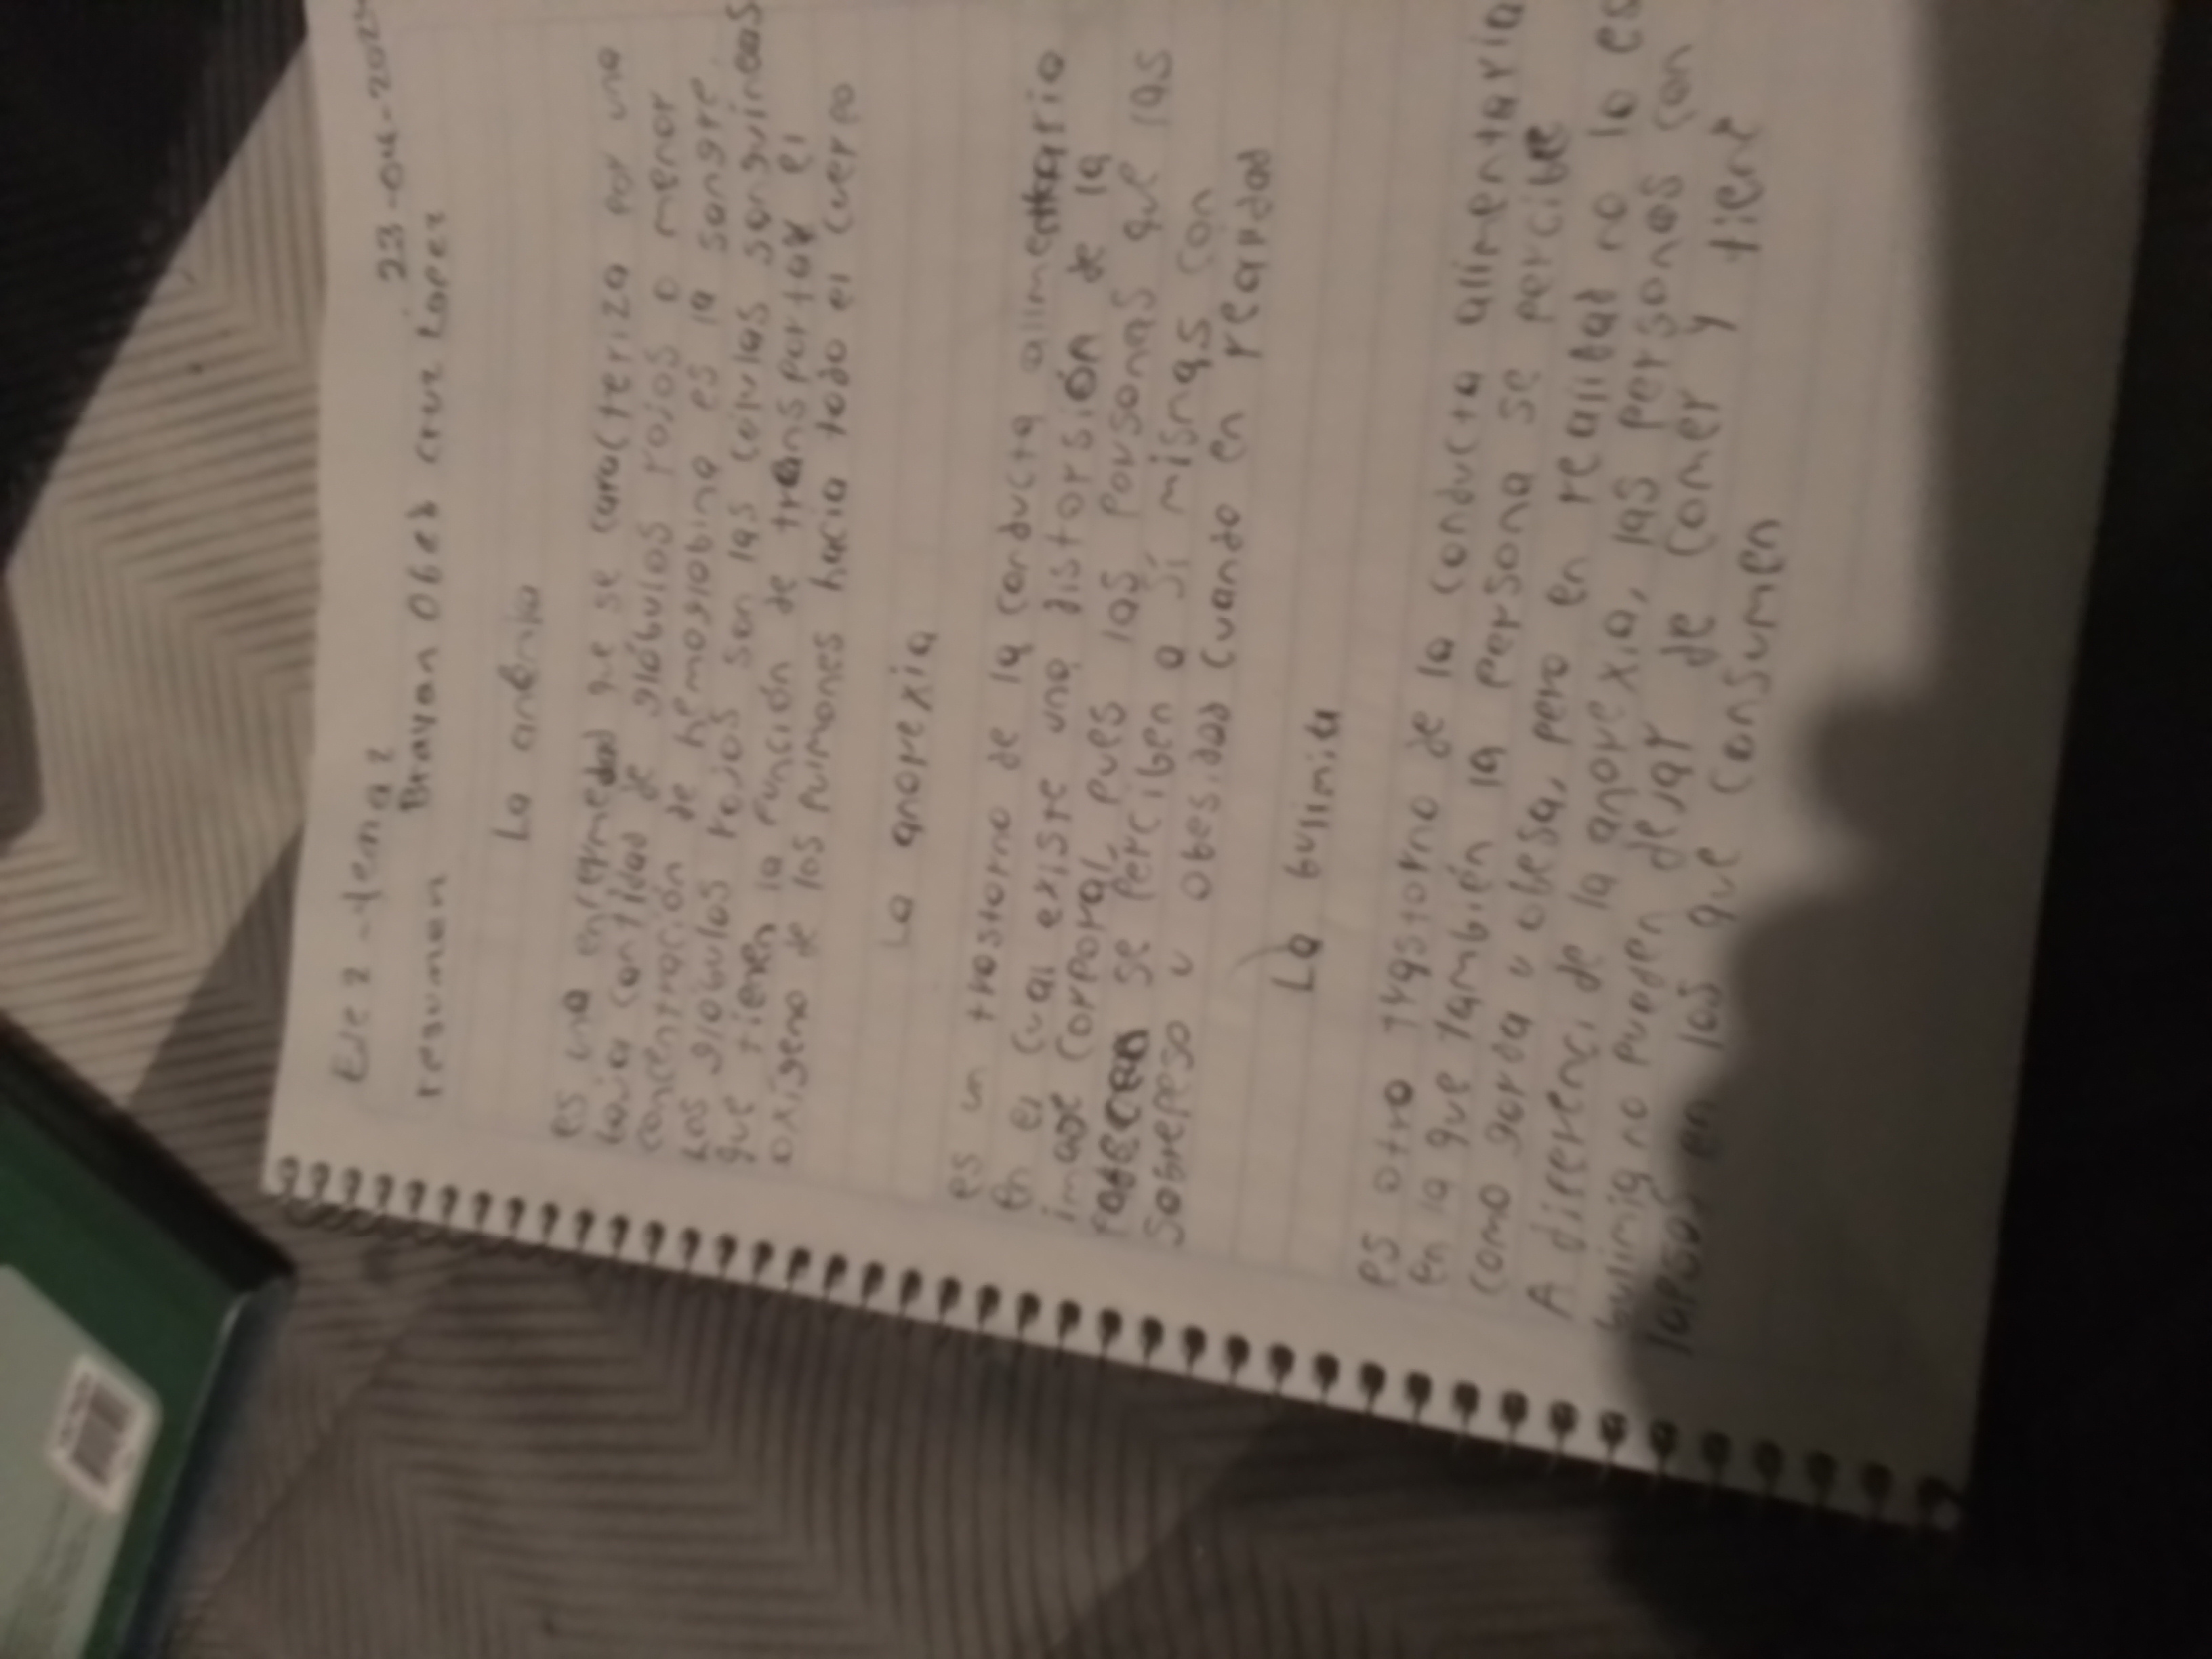 Eje 2 - tema 2
23-04-202
resumen Brayan Obed cruz Lopez
La anemia
es una enfermedad que se caracteriza por una
baja cantidad de glóbulos rojos o menor
concentración de hemoglobina es la sangre.
Los glóbulos rojos son las células sanguíneas
que tienen la función de transportar el
oxígeno de los pulmones hacia todo el cuerpo
La anorexia
es un trastorno de la conducta alimentario
en el cual existe una distorsión de la
corporal, pues las personas que las
se perciben a sí misnas con
sobrepeso u obesidad cuando en reardad
La bulimia
es otro trastorno de la conducta alimentaria
en la que también la persona se percibe
como gorda u obesa, pero en realidad no lo es
A diferenci de la anorexia, las personas con
bulimia no pueden dejar de comer y tiene
lapsos en los que consumen